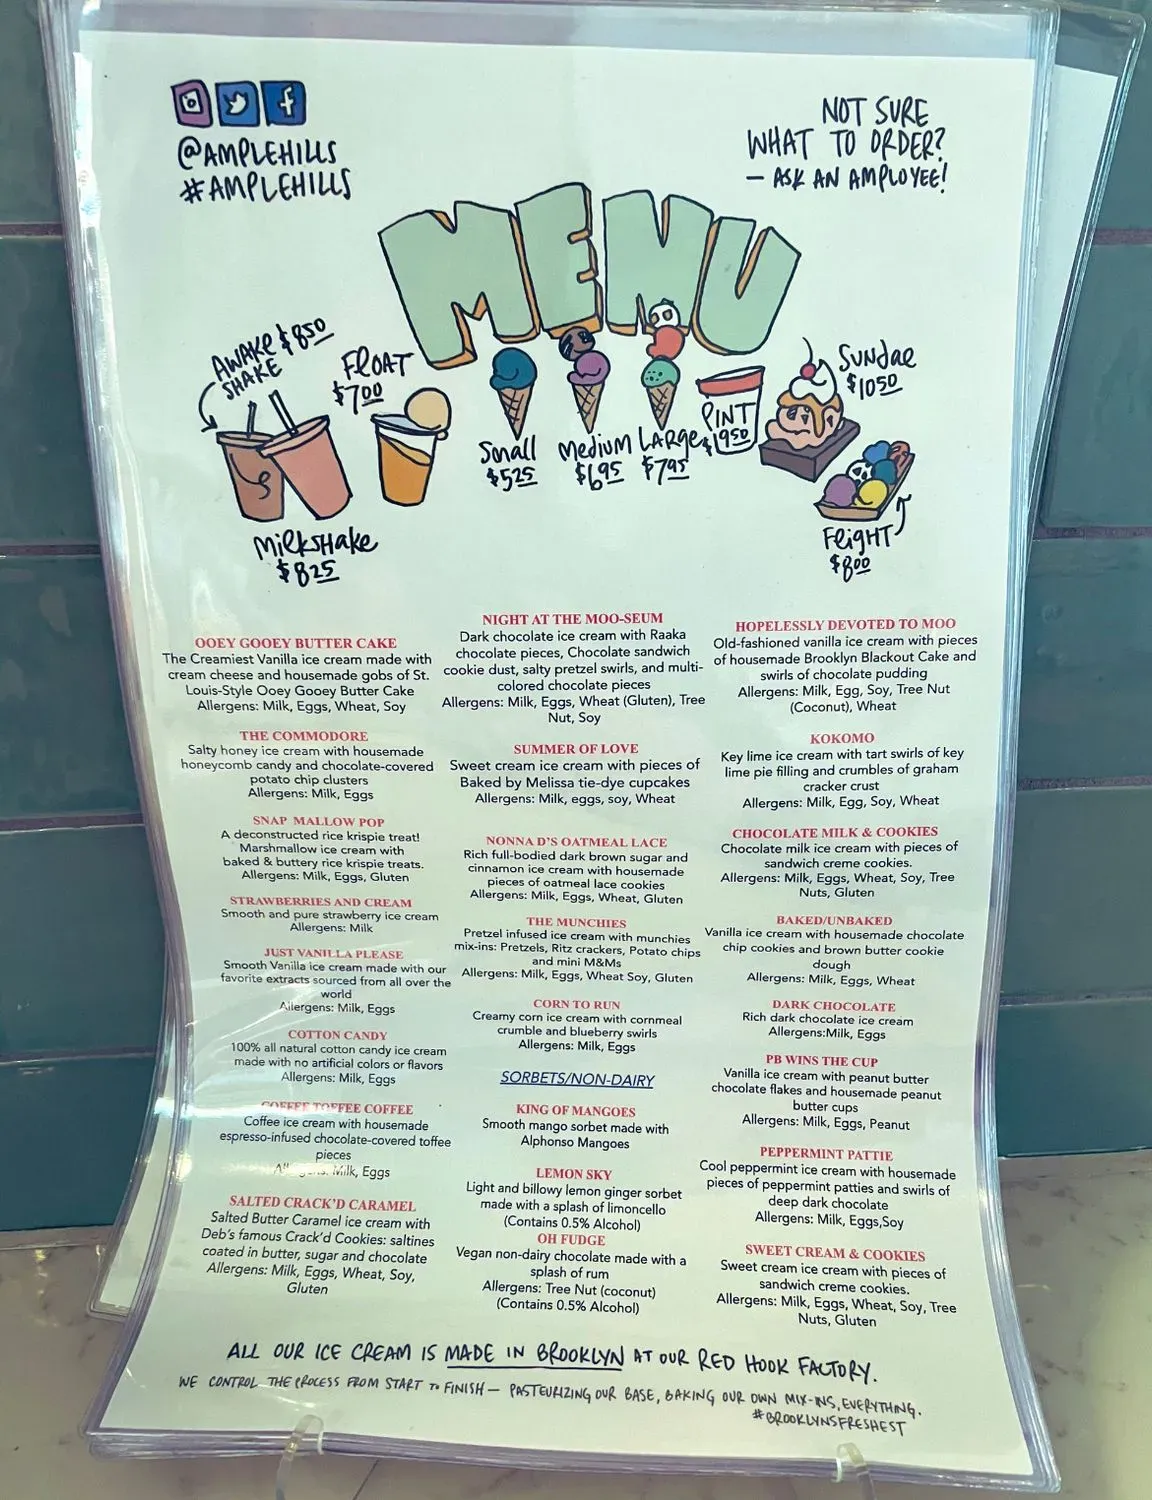 @AMPLEHILLS
#AMPLEHILLS
NOT SURE
WHAT TO ORDER?
— ASK AN AMPLOYEE!
MENU
AWAKE $8.50
SHAKE
FLOAT
$7.00
MilkSHake
$8.25
Small
$5.25
Medium
$6.95
LARge
$7.95
PINT
$9.50
SUNDae
$10.50
FligHT
$8.00
OOEY GOOEY BUTTER CAKE
The Creamiest Vanilla ice cream made with
cream cheese and housemade gobs of St.
Louis-Style Ooey Gooey Butter Cake
Allergens: Milk, Eggs, Wheat, Soy
THE COMMODORE
Salty honey ice cream with housemade
honeycomb candy and chocolate-covered
potato chip clusters
Allergens: Milk, Eggs
SNAP MALLOW POP
A deconstructed rice krispie treat!
Marshmallow ice cream with
baked & buttery rice krispie treats.
Allergens: Milk, Eggs, Gluten
STRAWBERRIES AND CREAM
Smooth and pure strawberry ice cream
Allergens: Milk
JUST VANILLA PLEASE
Smooth Vanilla ice cream made with our
favorite extracts sourced from all over the
world
Allergens: Milk, Eggs
COTTON CANDY
100% all natural cotton candy ice cream
made with no artificial colors or flavors
Allergens: Milk, Eggs
COFFEE TOFFEE COFFEE
Coffee ice cream with housemade
espresso-infused chocolate-covered toffee
pieces
Allergens: Milk, Eggs
SALTED CRACK'D CARAMEL
Salted Butter Caramel ice cream with
Deb's famous Crack'd Cookies: saltines
coated in butter, sugar and chocolate
Allergens: Milk, Eggs, Wheat, Soy,
Gluten
NIGHT AT THE MOO-SEUM
Dark chocolate ice cream with Raaka
chocolate pieces, Chocolate sandwich
cookie dust, salty pretzel swirls, and multi-
colored chocolate pieces
Allergens: Milk, Eggs, Wheat (Gluten), Tree
Nut, Soy
SUMMER OF LOVE
Sweet cream ice cream with pieces of
Baked by Melissa tie-dye cupcakes
Allergens: Milk, eggs, soy, Wheat
NONNA D'S OATMEAL LACE
Rich full-bodied dark brown sugar and
cinnamon ice cream with housemade
pieces of oatmeal lace cookies
Allergens: Milk, Eggs, Wheat, Gluten
THE MUNCHIES
Pretzel infused ice cream with munchies
mix-ins: Pretzels, Ritz crackers, Potato chips
and mini M&Ms
Allergens: Milk, Eggs, Wheat Soy, Gluten
CORN TO RUN
Creamy corn ice cream with cornmeal
crumble and blueberry swirls
Allergens: Milk, Eggs
SORBETS/NON-DAIRY
KING OF MANGOES
Smooth mango sorbet made with
Alphonso Mangoes
LEMON SKY
Light and billowy lemon ginger sorbet
made with a splash of limoncello
(Contains 0.5% Alcohol)
OH FUDGE
Vegan non-dairy chocolate made with a
splash of rum
Allergens: Tree Nut (coconut)
(Contains 0.5% Alcohol)
HOPELESSLY DEVOTED TO MOO
Old-fashioned vanilla ice cream with pieces
of housemade Brooklyn Blackout Cake and
swirls of chocolate pudding
Allergens: Milk, Egg, Soy, Tree Nut
(Coconut), Wheat
KOKOMO
Key lime ice cream with tart swirls of key
lime pie filling and crumbles of graham
cracker crust
Allergens: Milk, Egg, Soy, Wheat
CHOCOLATE MILK & COOKIES
Chocolate milk ice cream with pieces of
sandwich creme cookies.
Allergens: Milk, Eggs, Wheat, Soy, Tree
Nuts, Gluten
BAKED/UNBAKED
Vanilla ice cream with housemade chocolate
chip cookies and brown butter cookie
dough
Allergens: Milk, Eggs, Wheat
DARK CHOCOLATE
Rich dark chocolate ice cream
Allergens:Milk, Eggs
PB WINS THE CUP
Vanilla ice cream with peanut butter
chocolate flakes and housemade peanut
butter cups
Allergens: Milk, Eggs, Peanut
PEPPERMINT PATTIE
Cool peppermint ice cream with housemade
pieces of peppermint patties and swirls of
deep dark chocolate
Allergens: Milk, Eggs,Soy
SWEET CREAM & COOKIES
Sweet cream ice cream with pieces of
sandwich creme cookies.
Allergens: Milk, Eggs, Wheat, Soy, Tree
Nuts, Gluten
ALL OUR ICE CREAM IS MADE IN BROOKLYN AT OUR RED HOOK FACTORY.
WE CONTROL THE PROCESS FROM START to FINISH — PASTEURIZING OUR BASE, BAKING OUR OWN MIX-INS, EVERYTHING.
#BROOKLYNSFRESHEST